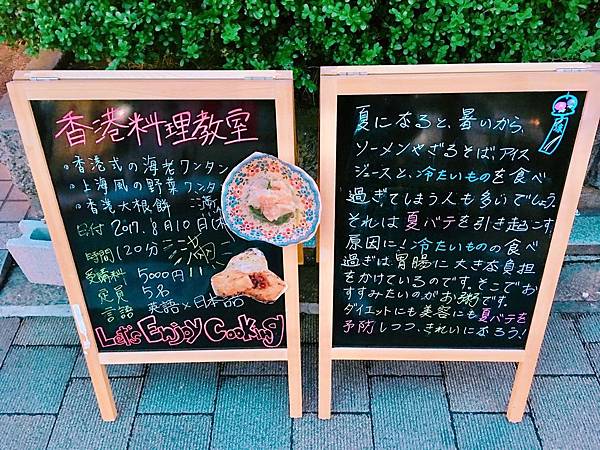 香港料理教室
。香港式の海老ワンタン
。上海風の野菜ワンタン
。香港大根餅
日付 2017.8月10日(木)
時間 120分
満席
受講料 5000円!!
定員 5名
言語 英語×日本語
Let's Enjoy Cooking
夏になると、暑いから、
ソーメンやざるそば、アイス
ジュースと、冷たいものを食べ
過ぎてしまう人も多いでしょう。
それは夏バテを引き起こす
原因に!冷たいものの食べ
過ぎは胃腸に大きな負担
をかけているのです。そこでお
すすみたいのがお粥です。
ダイエットにも美容にも夏バテを
予防しつつ、きれいになろう!